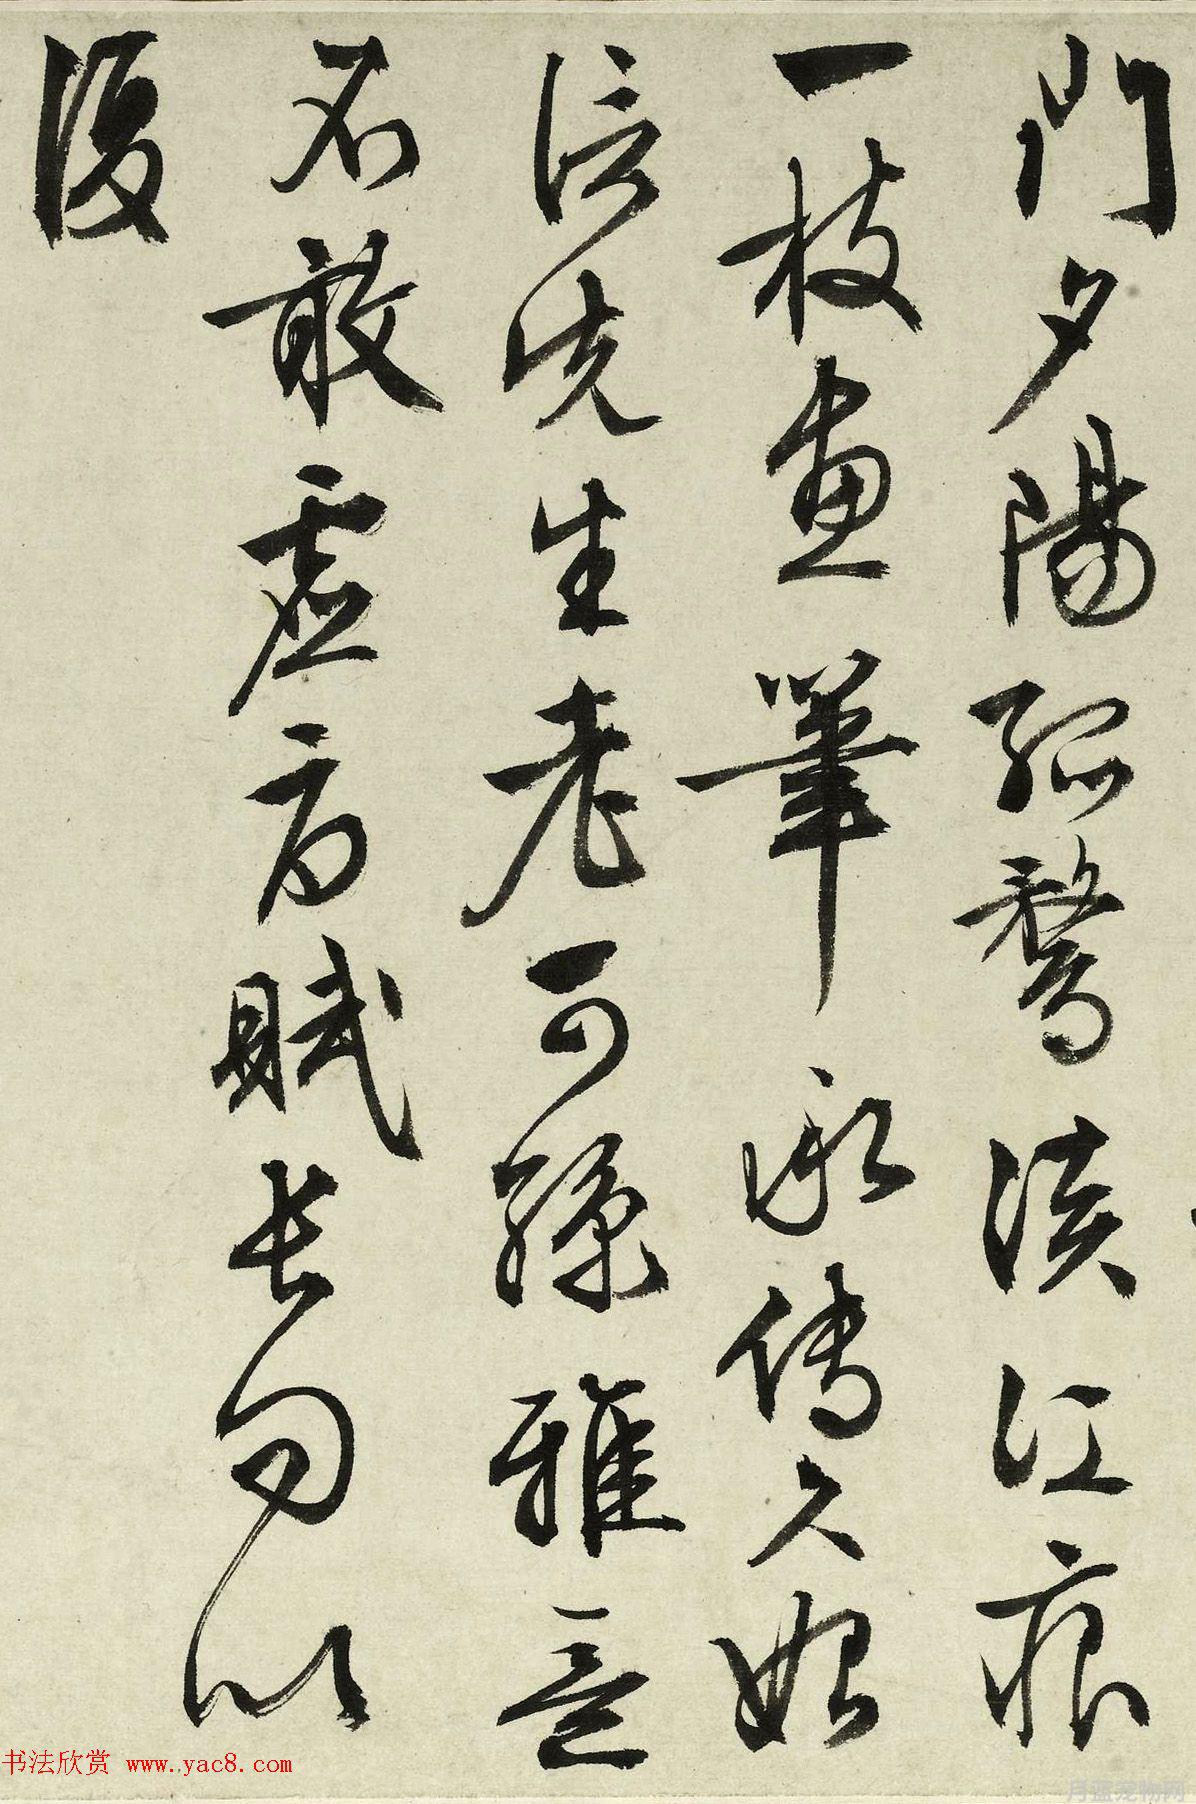 門夕陽孤鶩淡江痕
一枝畫筆承傳久始
信先生老可孫雅意
不敢虛
賦長句以
復
书法欣赏 www.yac8.com
月蓝宠物网